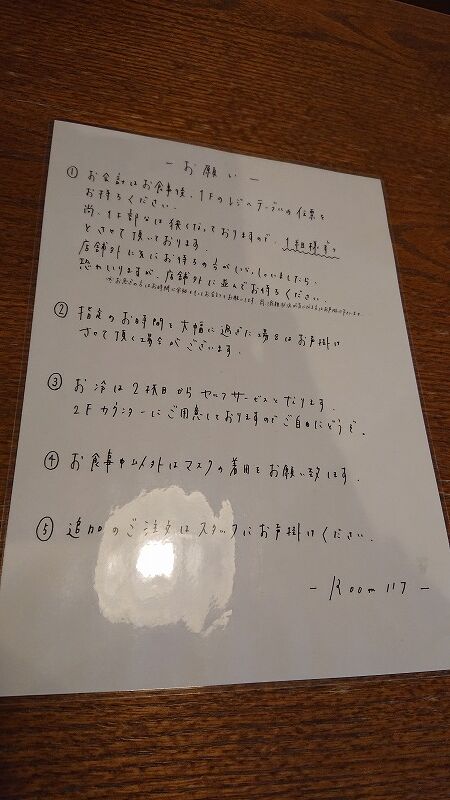 ー お願い ー
① お会計はお食事後、1Fのレジへテーブルの伝票を
お持ちください。
尚、1F部分は狭くなっておりますので、1組様ずつ
とさせて頂いております。
店舗外に先にお待ちの方がいらっしゃいましたら、
恐れいりますが、店舗外に並んでお待ちください。
② 指定のお時間を大幅に過ぎた場合はお声掛け
させて頂く場合がございます。
③ お冷は2杯目からセルフサービスとなります。
2Fカウンターにご用意しておりますのでご自由にどうぞ。
④ お食事中以外はマスクの着用をお願い致します。
⑤ 追加のご注文はスタッフにお声掛けください。
ー Room 117 ー